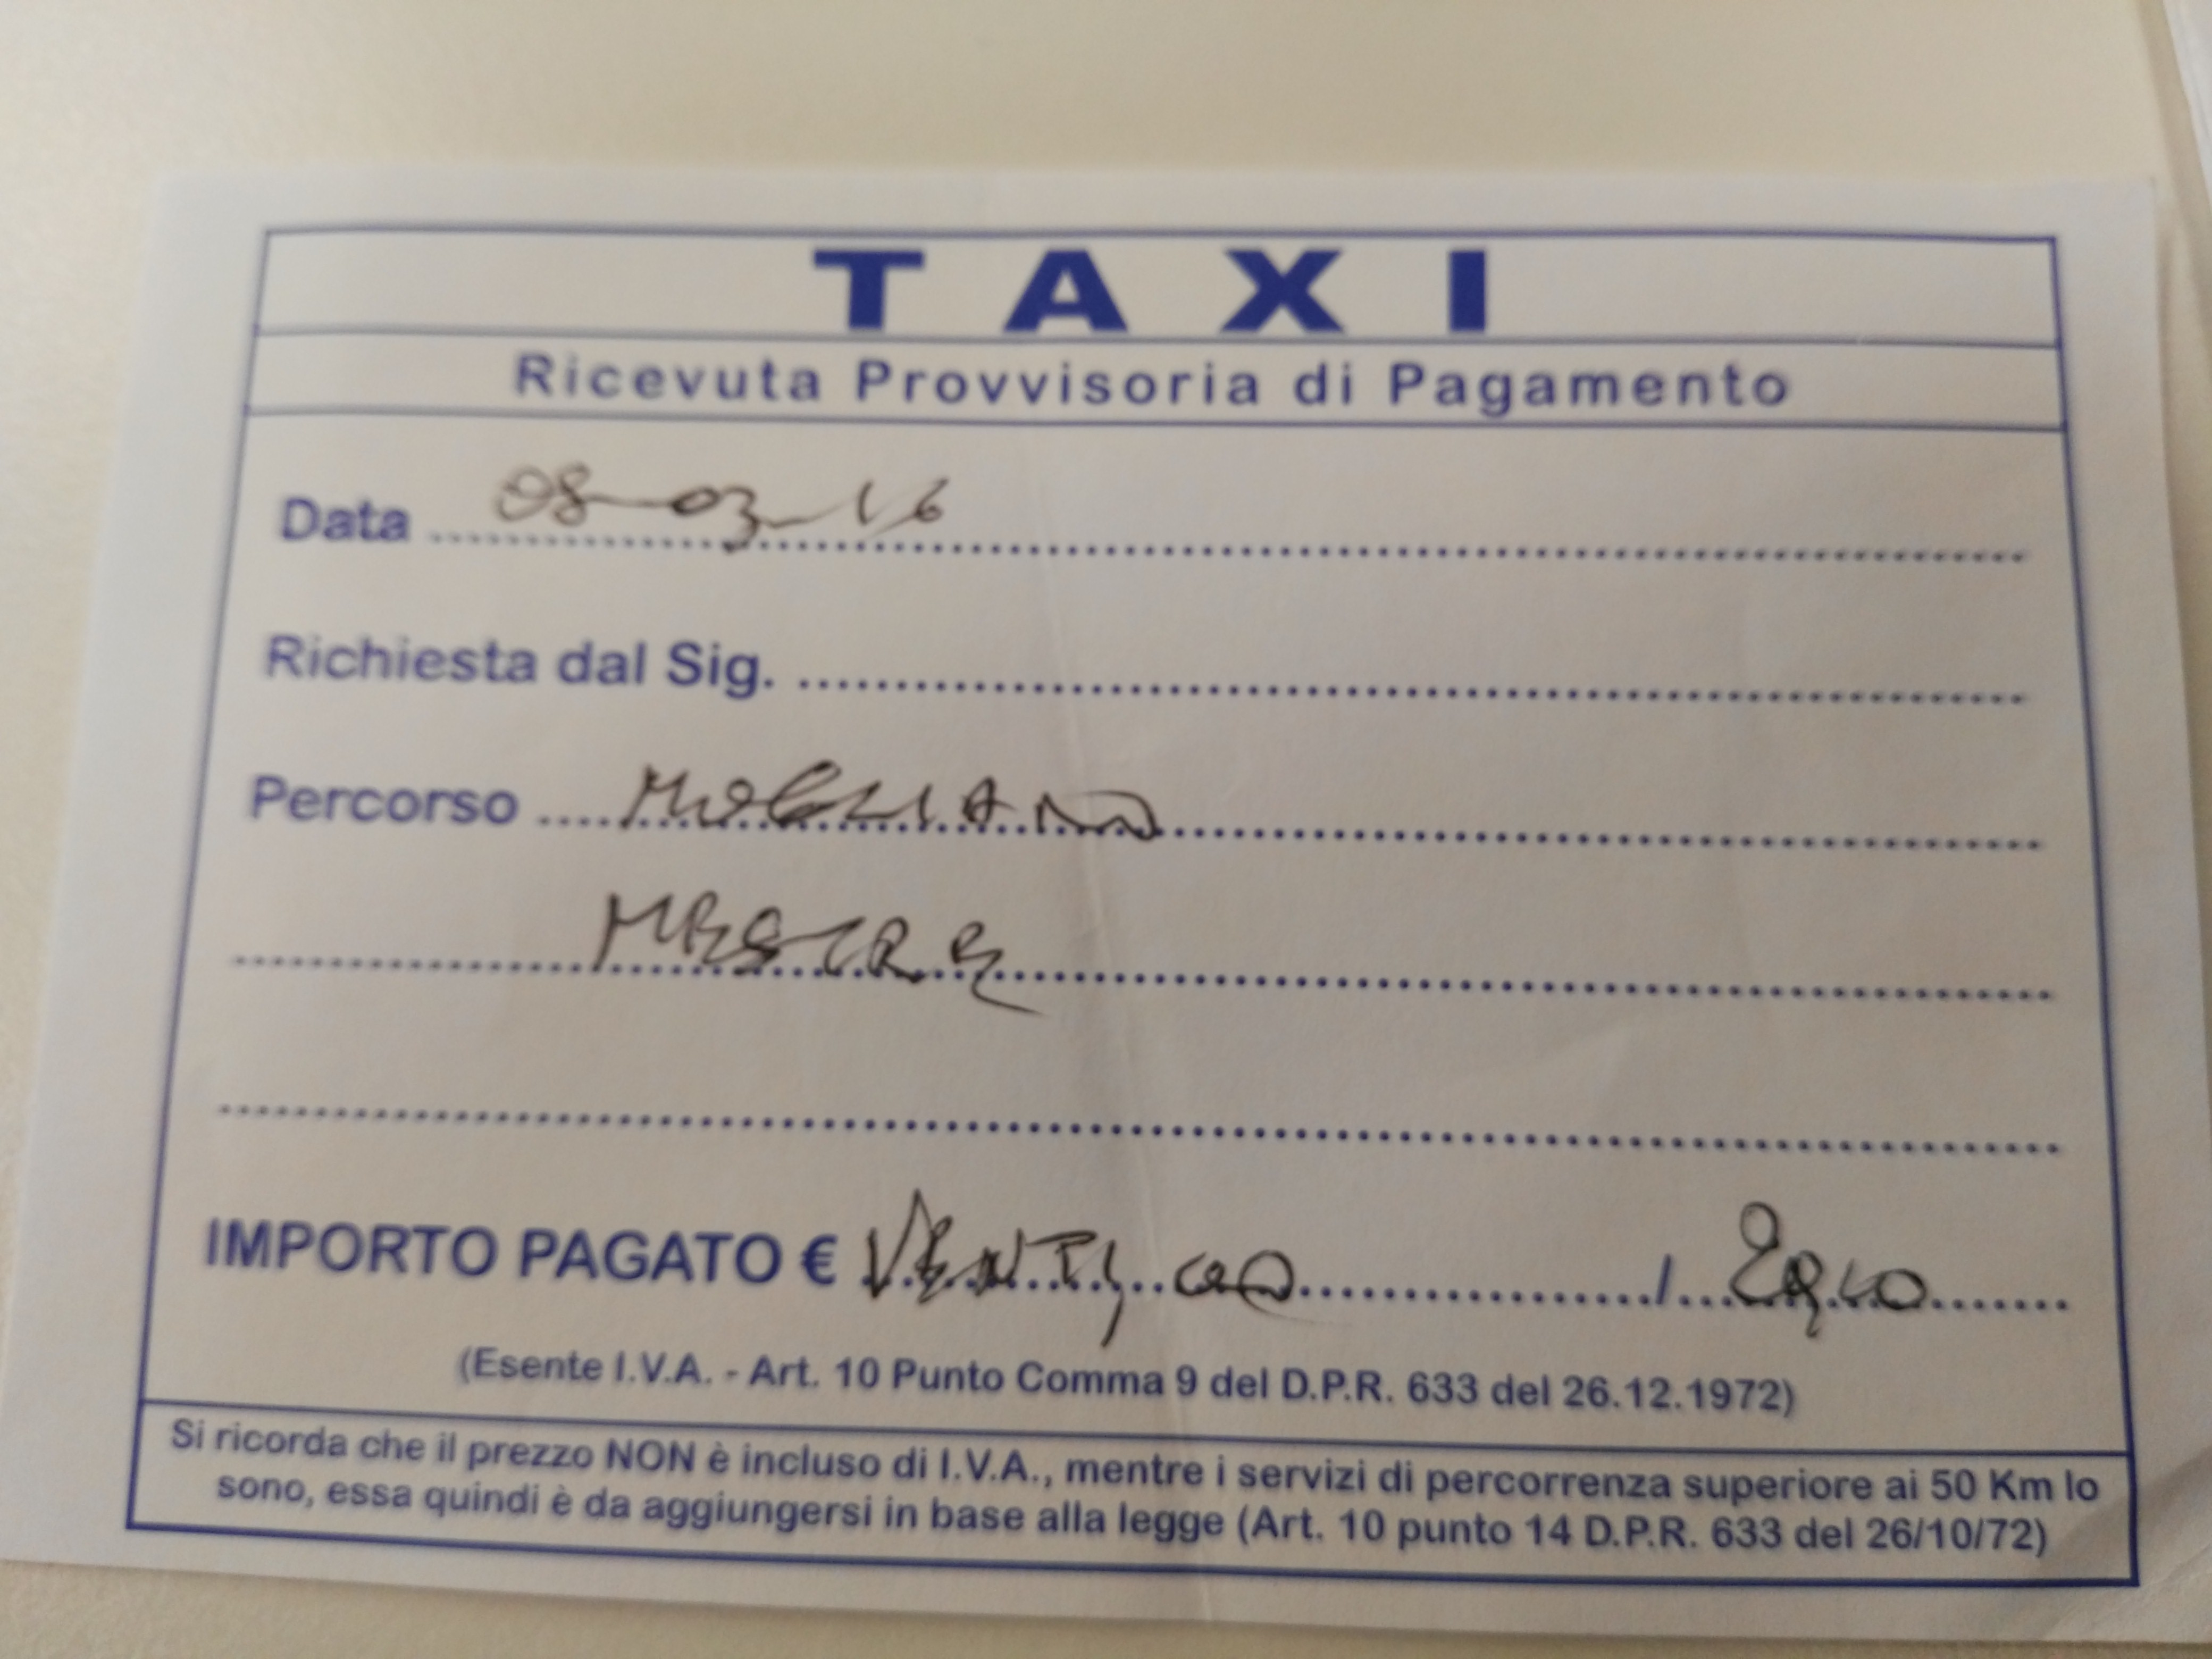 TAXI
Ricevuta Provvisoria di Pagamento
Data 08-03-16
Richiesta dal Sig.
Percorso MOGLIANO
MESTRE
IMPORTO PAGATO € VENTI, /
(Esente I.V.A. - Art. 10 Punto Comma 9 del D.P.R. 633 del 26.12.1972)
Si ricorda che il prezzo NON è incluso di I.V.A., mentre i servizi di percorrenza superiore ai 50 Km lo
sono, essa quindi è da aggiungersi in base alla legge (Art. 10 punto 14 D.P.R. 633 del 26/10/72)